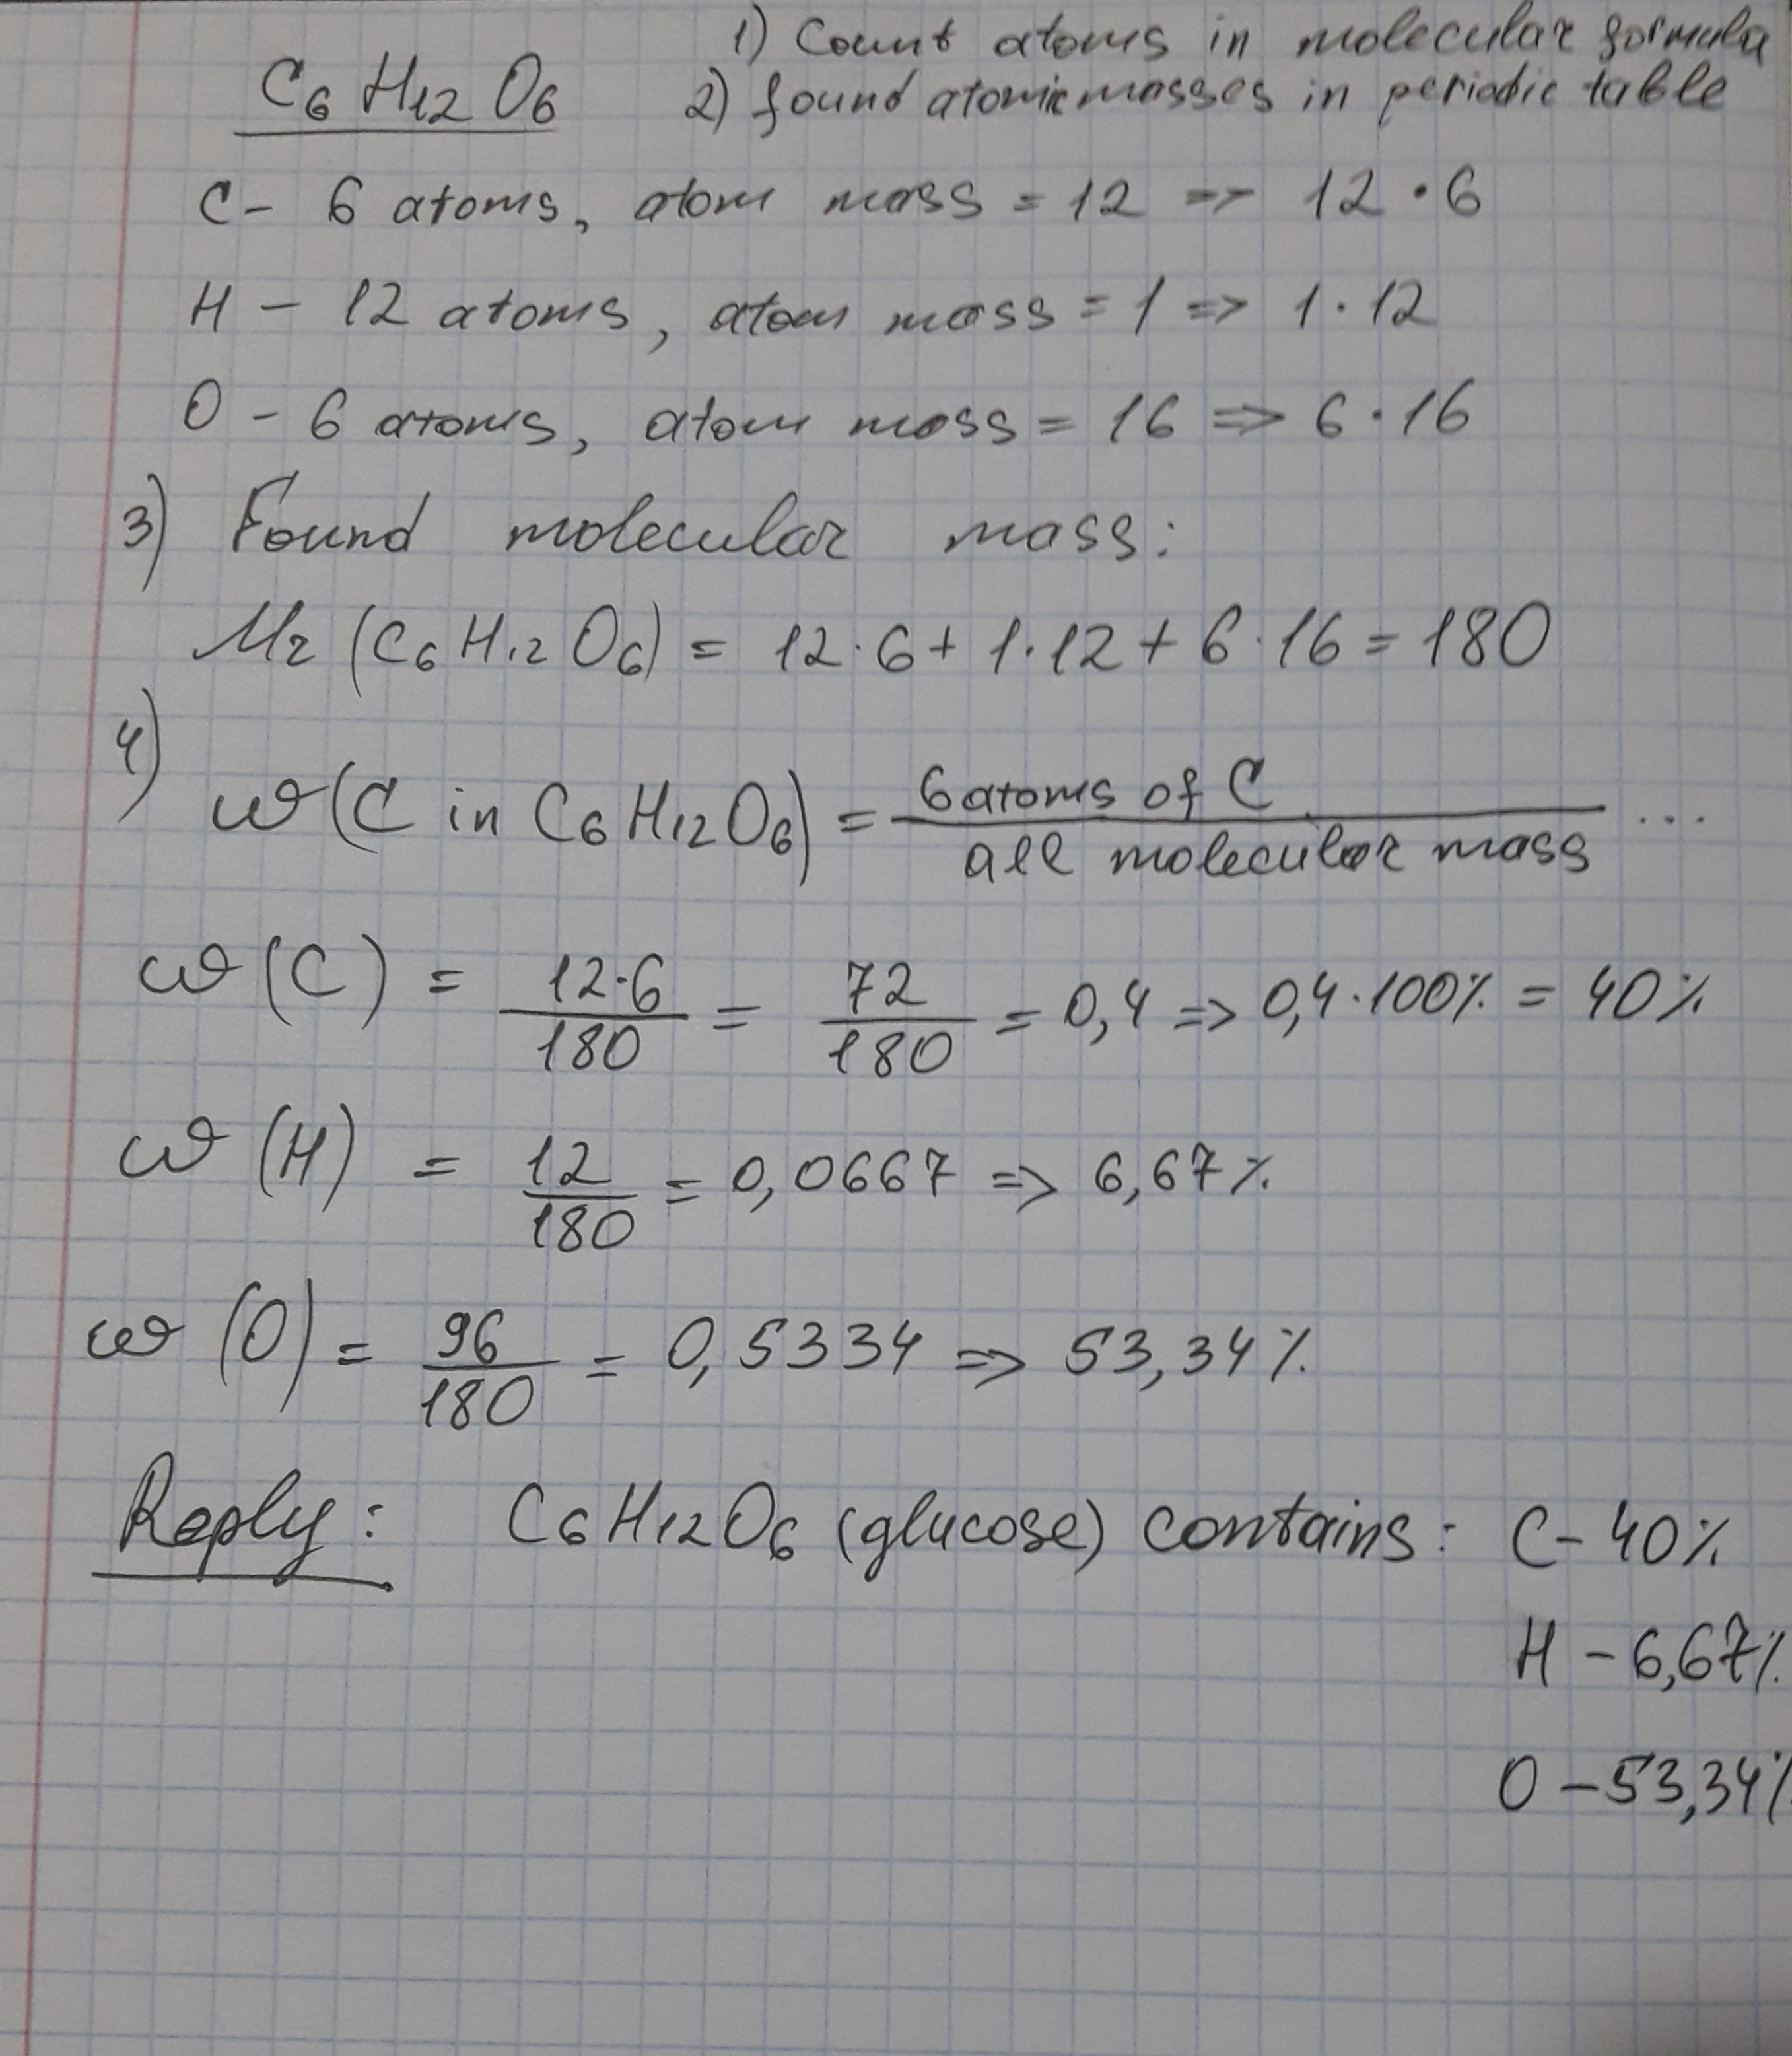 1) Count atoms in molecular formula
C₆H₁₂O₆ 2) found atomic masses in periodic table
C - 6 atoms, atom mass = 12 => 12 · 6
H - 12 atoms, atom mass = 1 => 1 · 12
O - 6 atoms, atom mass = 16 => 6 · 16
3) Found molecular mass:
Mr (C₆H₁₂O₆) = 12 · 6 + 1 · 12 + 6 · 16 = 180
4)
ω(C in C₆H₁₂O₆) = 6 atoms of C / all molecular mass ...
ω(C) = 12·6 / 180 = 72 / 180 = 0,4 => 0,4 · 100% = 40%
ω(H) = 12 / 180 = 0,0667 => 6,67%
ω(O) = 96 / 180 = 0,5334 => 53,34%
Reply: C₆H₁₂O₆ (glucose) contains: C - 40%
H - 6,67%
O - 53,34%